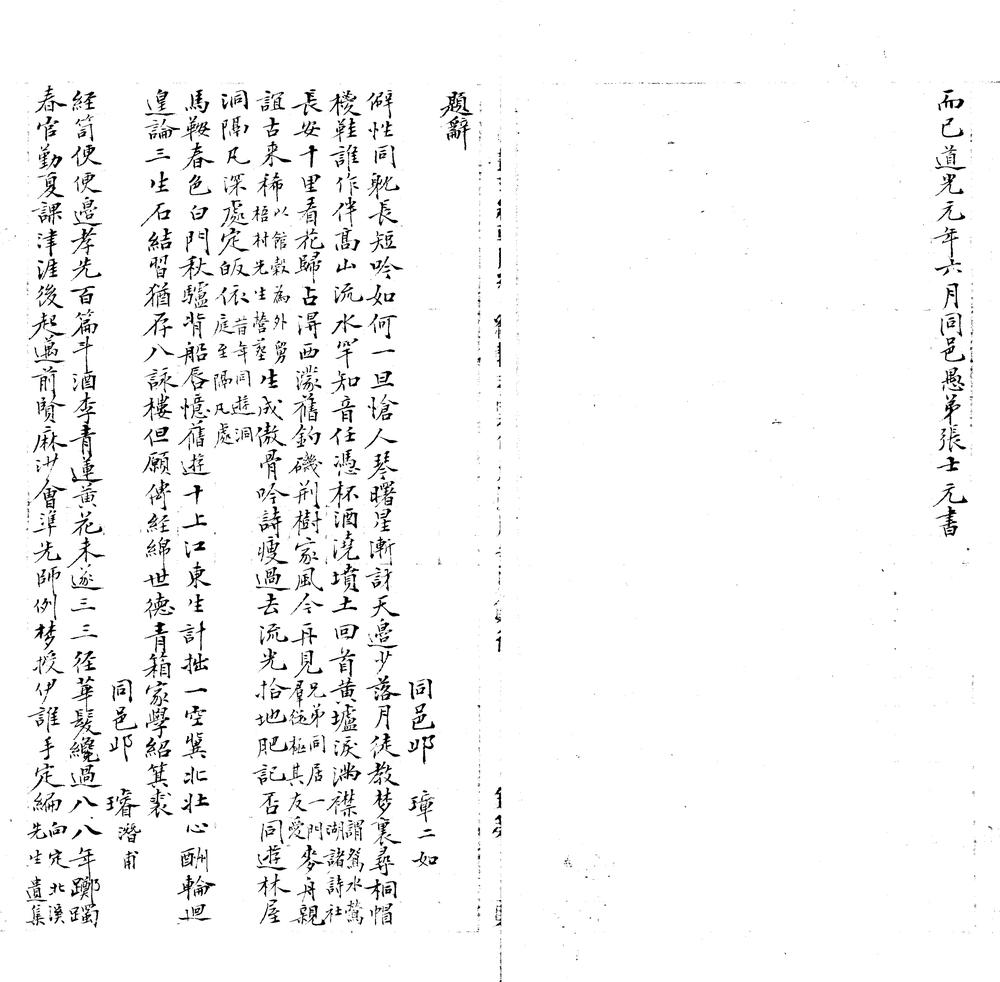 而已道光元年六月同邑愚弟張士元書
題辭
同邑邱璋二如
僻性同躭長短吟如何一旦愴人琴曙星漸訝天邊少落月徒教梦裏尋桐帽
椶鞋誰作伴高山流水罕知音任憑杯酒澆墳土回首黄壚淚滿襟謂鴛水鶯湖諸詩社
長安十里看花歸占淂西濛舊釣磯荆樹家風今再見兄弟同居一門羣從極其友愛麥舟親
誼古来稀以館穀為外舅梧村先生營塟生成傲骨吟詩瘦過去流光拾地肥記否同遊林屋
洞隔凡深處定皈依昔年同遊洞庭至隔凡處
馬鞍春色白門秋驢背船唇憶舊遊十上江東生計拙一空冀北壯心酬輪迴
遑論三生石結習猶存八詠樓但願傳経綿世德青箱家學紹箕裘
同邑邱璿潛甫
経笥便便邊孝先百篇斗酒李青蓮黄花未遂三三径華髮纔過八八年躑躅
春官勤夏課津涯後起邁前賢麻沙會準先師例梦授伊誰手定編向定北溪先生遺集